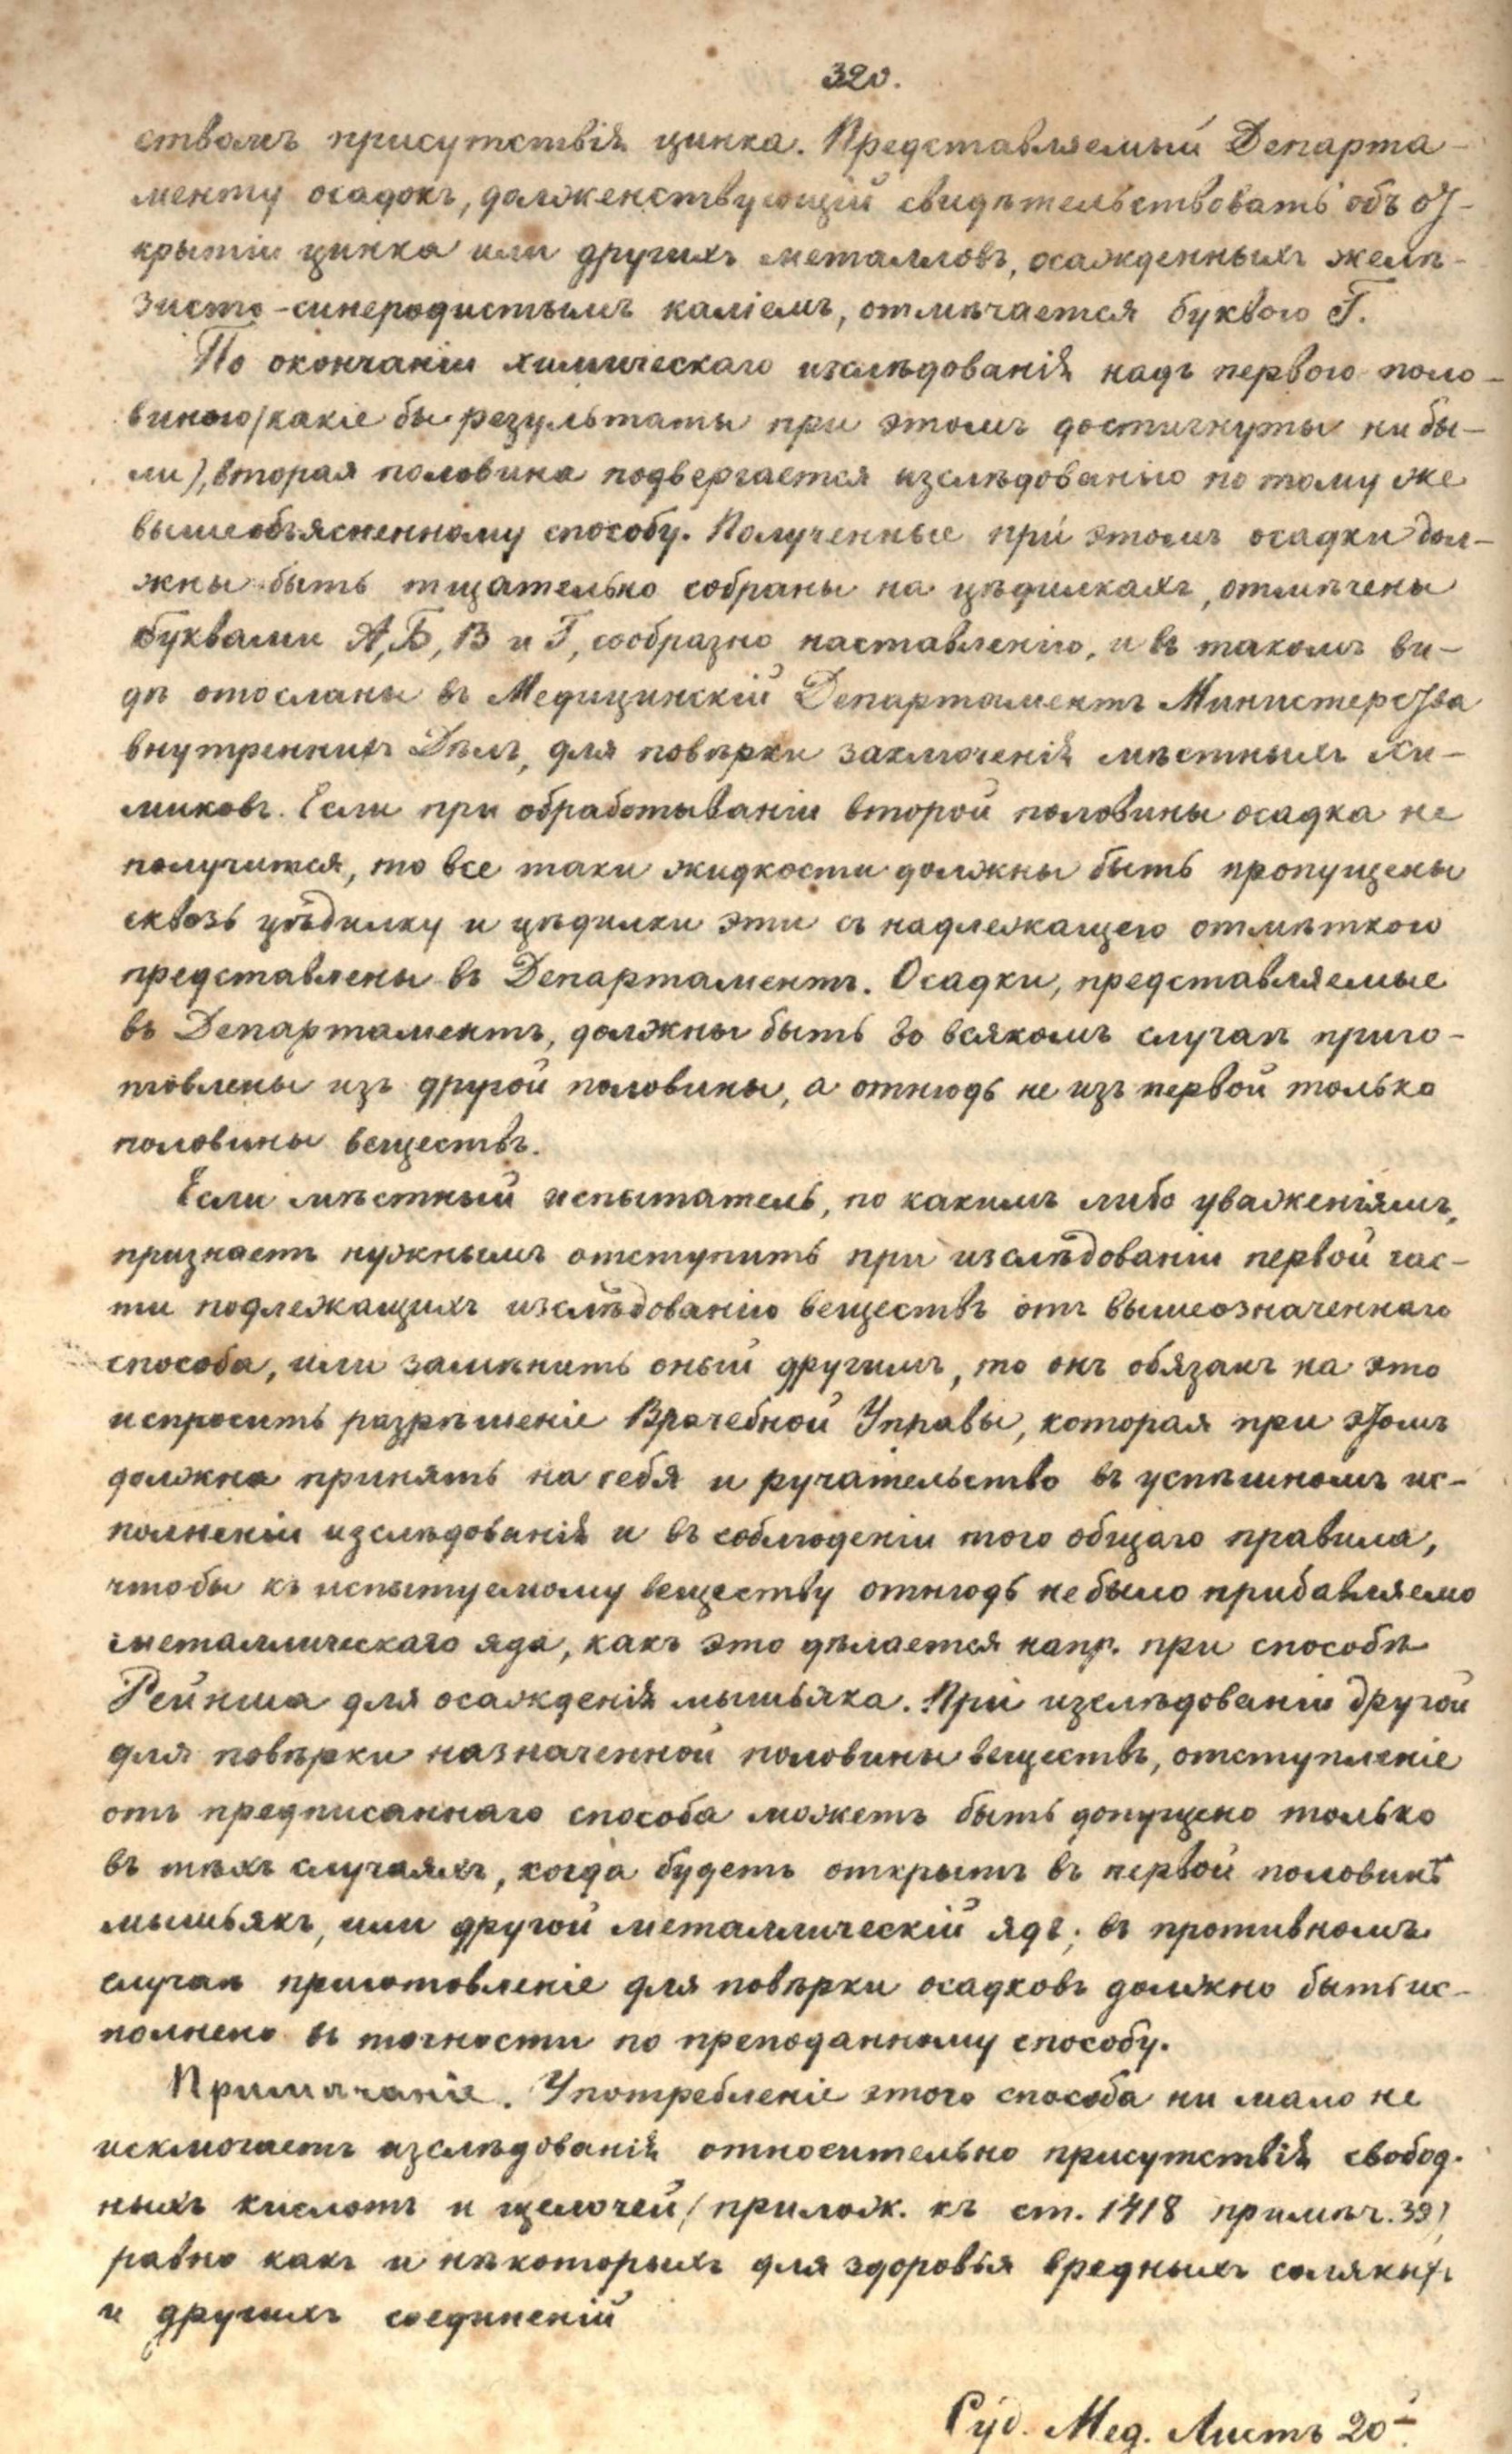 320.
ствомъ присутствія цинка. Представляемый Департа-
менту осадокъ, долженствующій свидѣтельствовать объ от-
крытіи цинка или другихъ металловъ, осажденныхъ желѣ-
зисто-синеродистымъ каліемъ, отмѣчается буквою Г.
По окончаніи химическаго изслѣдованія надъ первою поло-
виною (какіе бы результаты при этомъ достигнуты ни бы-
ли), вторая половина подвергается изслѣдованью по тому же
вышеобъясненному способу. Полученные при этомъ осадки дол-
жны быть тщательно собраны на цѣдилкахъ, отмѣчены
буквами А, Б, В и Г, сообразно наставленію, и въ такомъ ви-
дѣ отосланы въ Медицинскій Департаментъ Министерства
внутреннихъ Дѣлъ, для повѣрки заключенія мѣстныхъ хи-
миковъ. Если при обработываніи второй половины осадка не
получится, то все таки жидкости должны быть пропущены
сквозь цѣдилку и цѣдилки эти съ надлежащею отмѣткою
представлены въ Департаментъ. Осадки, представляемые
въ Департаментъ, должны быть во всякомъ случаѣ приго-
товлены изъ другой половины, а отнюдь не изъ первой только
половины веществъ.
Если мѣстный испытатель, по какимъ либо уваженіямъ,
признаетъ нужнымъ отступить при изслѣдованіи первой час-
ти подлежащихъ изслѣдованію веществъ отъ вышеозначеннаго
способа, или замѣнить оный другимъ, то онъ обязанъ на это
испросить разрѣшеніе Врачебной Управы, которая при этомъ
должна принять на себя и ручательство въ успѣшномъ ис-
полненіи изслѣдованія и въ соблюденіи того общаго правила,
чтобы къ испытуемому веществу отнюдь не было прибавляемо
металлическаго яда, какъ это дѣлается напр. при способѣ
Рейнша для осажденія мышьяка. При изслѣдованіи другой
для повѣрки назначенной половины веществъ, отступленіе
отъ предписаннаго способа можетъ быть допущено только
въ тѣхъ случаяхъ, когда будетъ открытъ въ первой половинѣ
мышьякъ, или другой металлическій ядъ; въ противномъ
случаѣ приготовленіе для повѣрки осадковъ должно быть ис-
полнено въ точности по преподанному способу.
Примѣчаніе. Употребленіе этого способа ни мало не
исключаетъ изслѣдованія относительно присутствія свобод-
ныхъ кислотъ и щелочей (прилож. къ ст. 1418 примѣч. 39)
равно какъ и нѣкоторыхъ для здоровья вредныхъ соляныхъ
и другихъ соединеній
Суд. Мед. Листъ 20й.